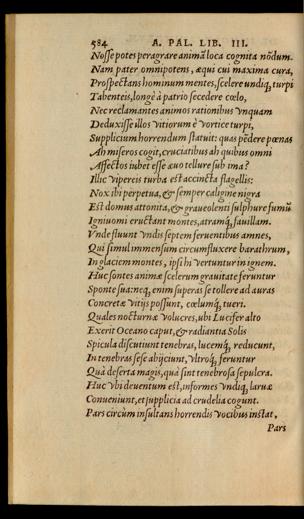 584 A. PAL. LIB. III.
Nosse potes peragrare animā loca cognita nōdum.
Nam pater omnipotens, æqui cui maxima cura,
Prospectans hominum mentes, scelere undiq; turpi
Tabenteis, longè à patrio secedere cœlo,
Nec reclamantes animos rationibus vnquam
Deduxisse illos vitiorum è vortice turpi,
Supplicium horrendum statuit: quas pēdere pœnas
Ah miseros cogit, cruciatibus ah quibus omni
Affectos iubet esse æuo tellure sub ima?
Illic vipereis turba est accincta flagellis:
Nox ibi perpetua, & semper caligine nigra
Est domus attonita, & graueolenti sulphure fumū
Igniuomi eructant montes, atramq; fauillam.
Vnde fluunt vndis septem feruentibus amnes,
Qui simul immensum circumfluxere barathrum,
In glaciem montes, ipsi hi vertuntur in ignem.
Huc sontes animæ scelerum grauitate feruntur
Sponte sua: neq; enim superas se tollere ad auras
Concretæ vitijs possunt, cœlumq; tueri.
Quales nocturnæ volucres, vbi Lucifer alto
Exerit Oceano caput, & radiantia Solis
Spicula discutiunt tenebras, lucemq; reducunt,
In tenebras sese abijciunt, vltroq; feruntur
Quà deserta magis, quà sint tenebrosa sepulcra.
Huc vbi deuentum est, informes vndiq; laruæ
Conueniunt, et supplicia ad crudelia cogunt.
Pars circùm insultans horrendis vocibus instat,
Pars